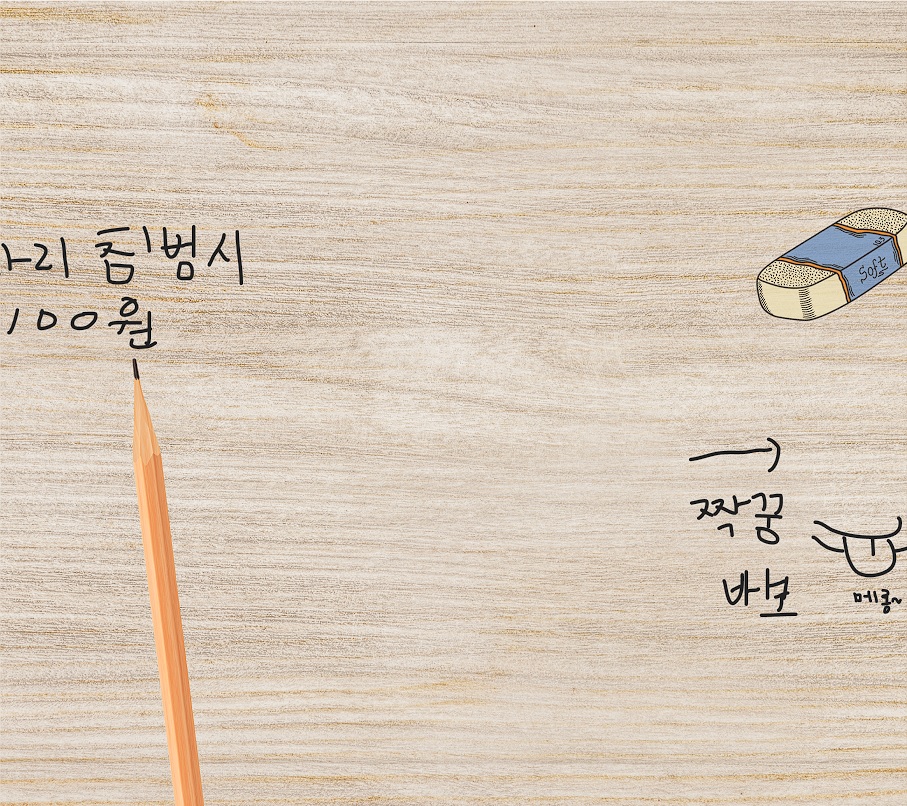 리 침범시
100원
Soft
→
짝꿍
바보
메롱~